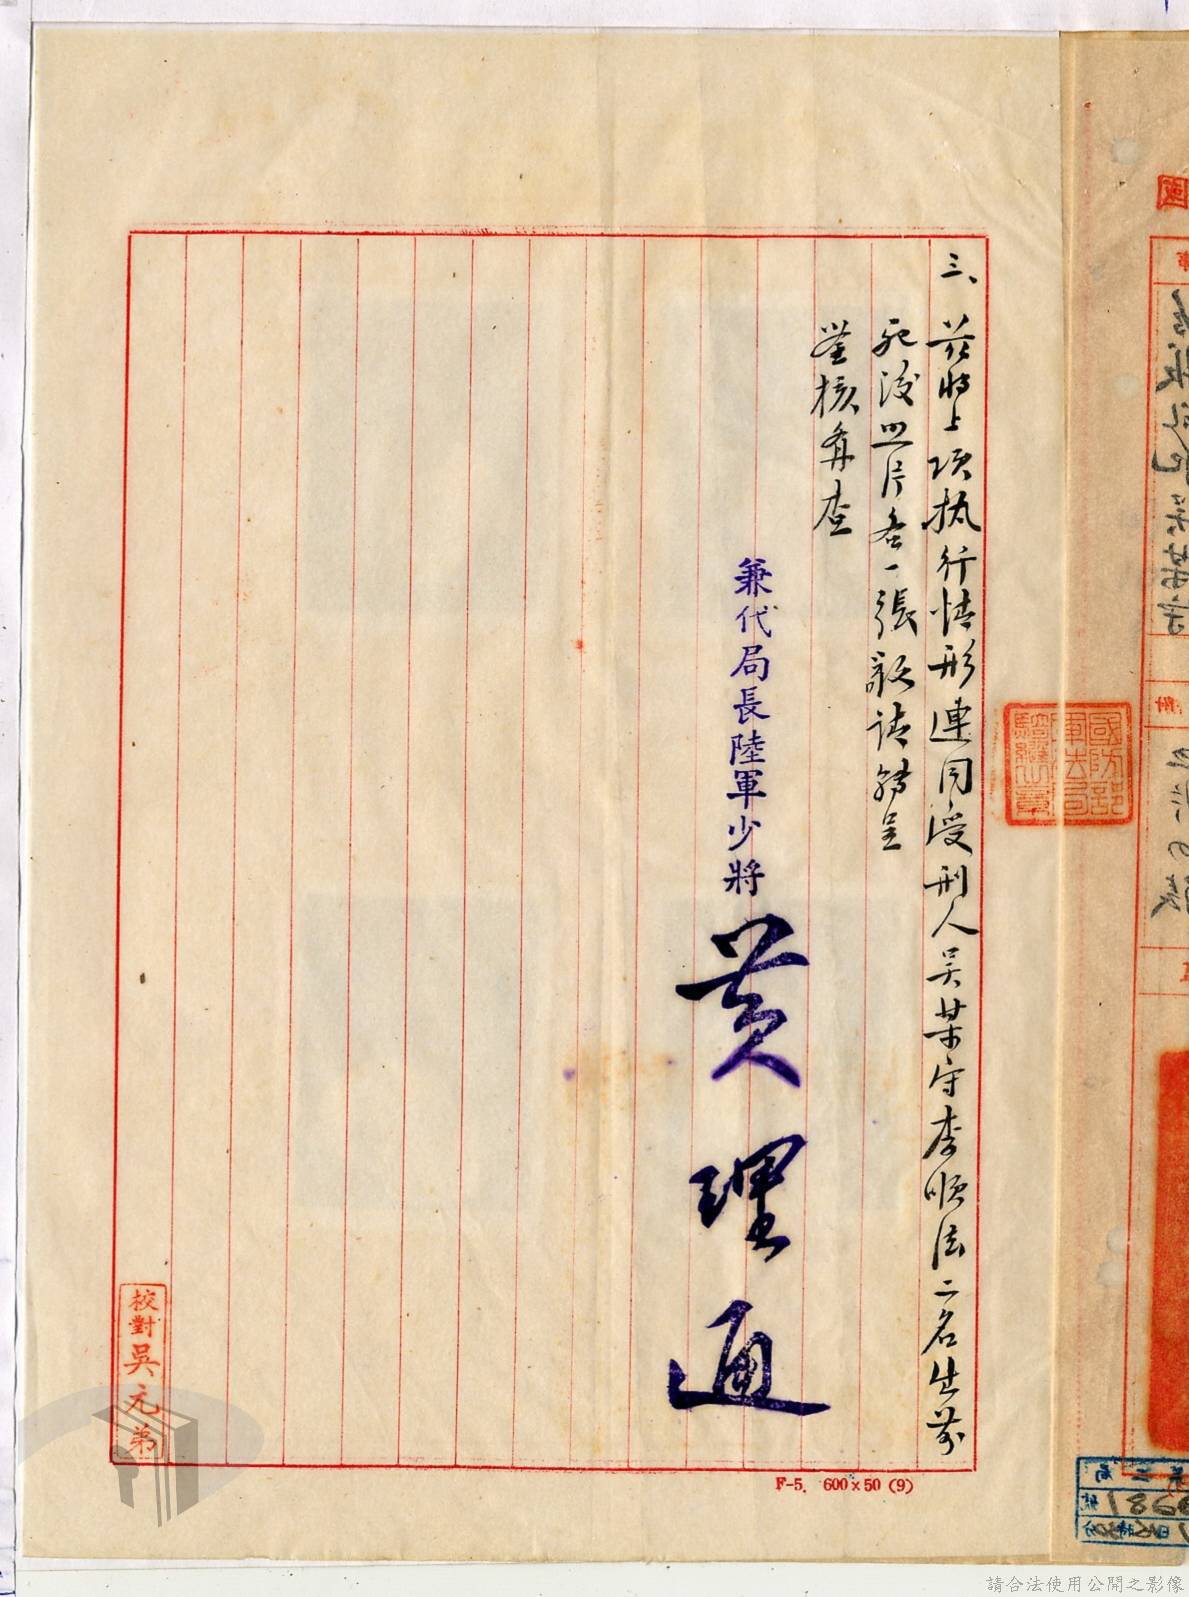 三、茲將上項执行情形連同受刑人吳某守李順法二名生前
死後照片各一張敬请转呈
鉴核备查
兼代局長陸軍少將
黄理通
校對吳元弟
國防部
軍法局
騎縫章
F-5. 600×50 (9)
請合法使用公開之影像